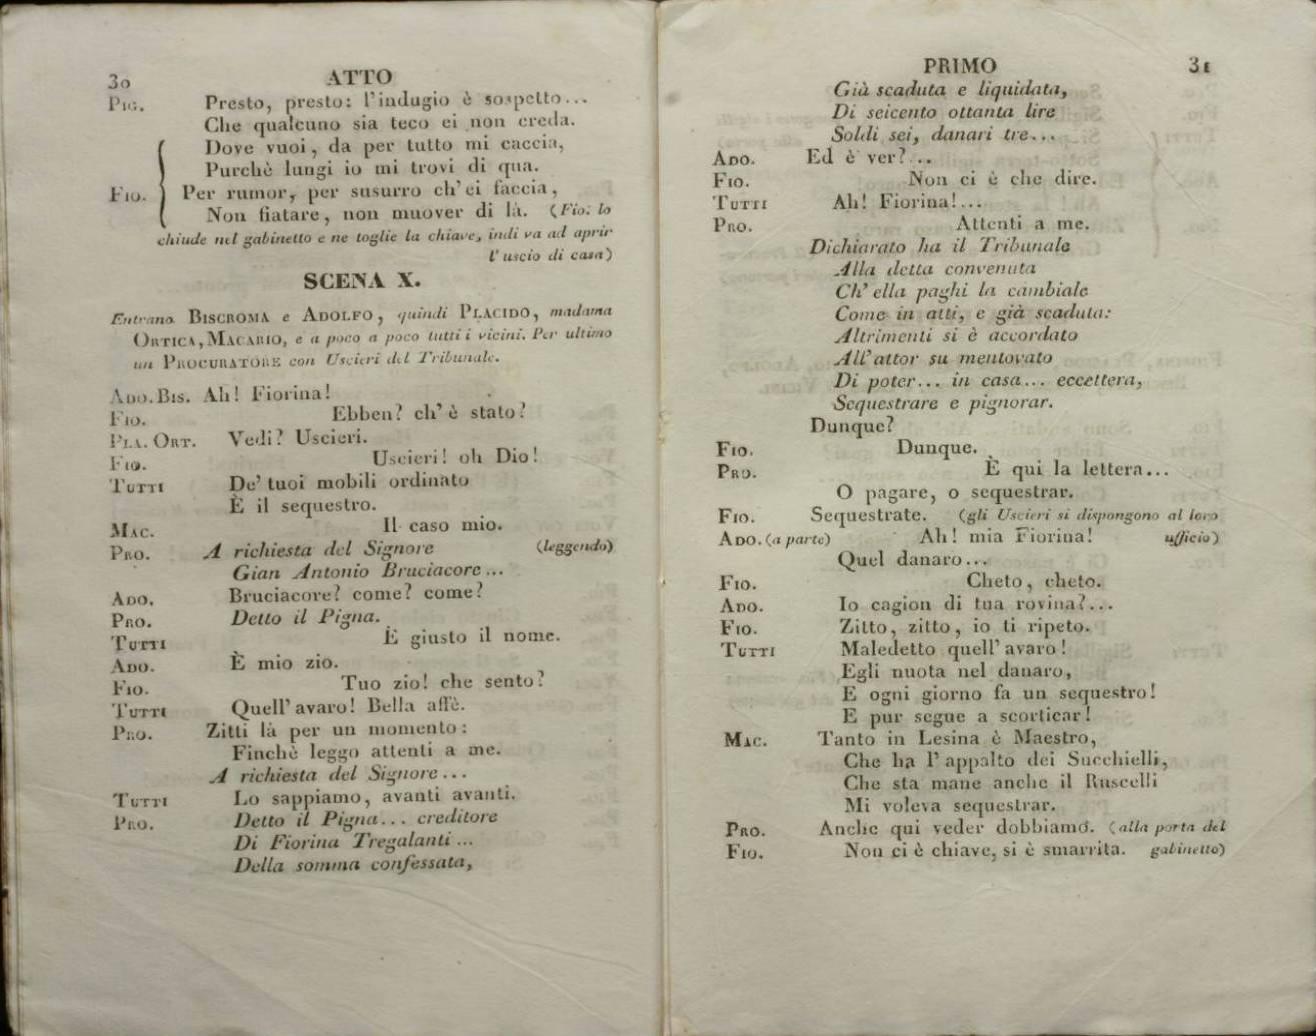 30 ATTO
Pig. Presto, presto: l'indugio è sospetto...
Che qualcuno sia teco ei non creda.
Dove vuoi, da per tutto mi caccia,
Purchè lungi io mi trovi di qua.
Fio. Per rumor, per susurro ch'ei faccia,
Non fiatare, non muover di là. (Fio. lo
chiude nel gabinetto e ne toglie la chiave, indi va ad aprir
l'uscio di casa)
SCENA X.
Entrano Biscroma e Adolfo, quindi Placido, madama
Ortica, Macario, e a poco a poco tutti i vicini. Per ultimo
un Procuratore con Uscieri del Tribunale.
Ado. Bis. Ah! Fiorina!
Fio. Ebben? ch'è stato?
Pla. Ort. Vedi? Uscieri.
Fio. Uscieri! oh Dio!
Tutti De' tuoi mobili ordinato
È il sequestro.
Mac. Il caso mio.
Pro. A richiesta del Signore (leggendo)
Gian Antonio Bruciacore...
Ado. Bruciacore? come? come?
Pro. Detto il Pigna.
Tutti È giusto il nome.
Ado. È mio zio.
Fio. Tuo zio! che sento?
Tutti Quell'avaro! Bella affè.
Pro. Zitti là per un momento:
Finchè leggo attenti a me.
A richiesta del Signore...
Tutti Lo sappiamo, avanti avanti.
Pro. Detto il Pigna... creditore
Di Fiorina Tregalanti...
Della somma confessata,
PRIMO 31
Già scaduta e liquidata,
Di seicento ottanta lire
Soldi sei, danari tre...
Ado. Ed è ver?...
Fio. Non ci è che dire.
Tutti Ah! Fiorina!...
Pro. Attenti a me.
Dichiarato ha il Tribunale
Alla detta convenuta
Ch'ella paghi la cambiale
Come in atti, e già scaduta:
Altrimenti si è accordato
All'attor su mentovato
Di poter... in casa... eccettera,
Sequestrare e pignorar.
Dunque?
Fio. Dunque.
Pro. È qui la lettera...
O pagare, o sequestrar.
Fio. Sequestrate. (gli Uscieri si dispongono al loro
Ado. (a parte) Ah! mia Fiorina! ufficio)
Quel danaro...
Fio. Cheto, cheto.
Ado. Io cagion di tua rovina?...
Fio. Zitto, zitto, io ti ripeto.
Tutti Maledetto quell'avaro!
Egli nuota nel danaro,
E ogni giorno fa un sequestro!
E pur segue a scorticar!
Mac. Tanto in Lesina è Maestro,
Che ha l'appalto dei Succhielli,
Che sta mane anche il Ruscelli
Mi voleva sequestrar.
Pro. Anche qui veder dobbiamo. (alla porta del
Fio. Non ci è chiave, si è smarrita. gabinetto)